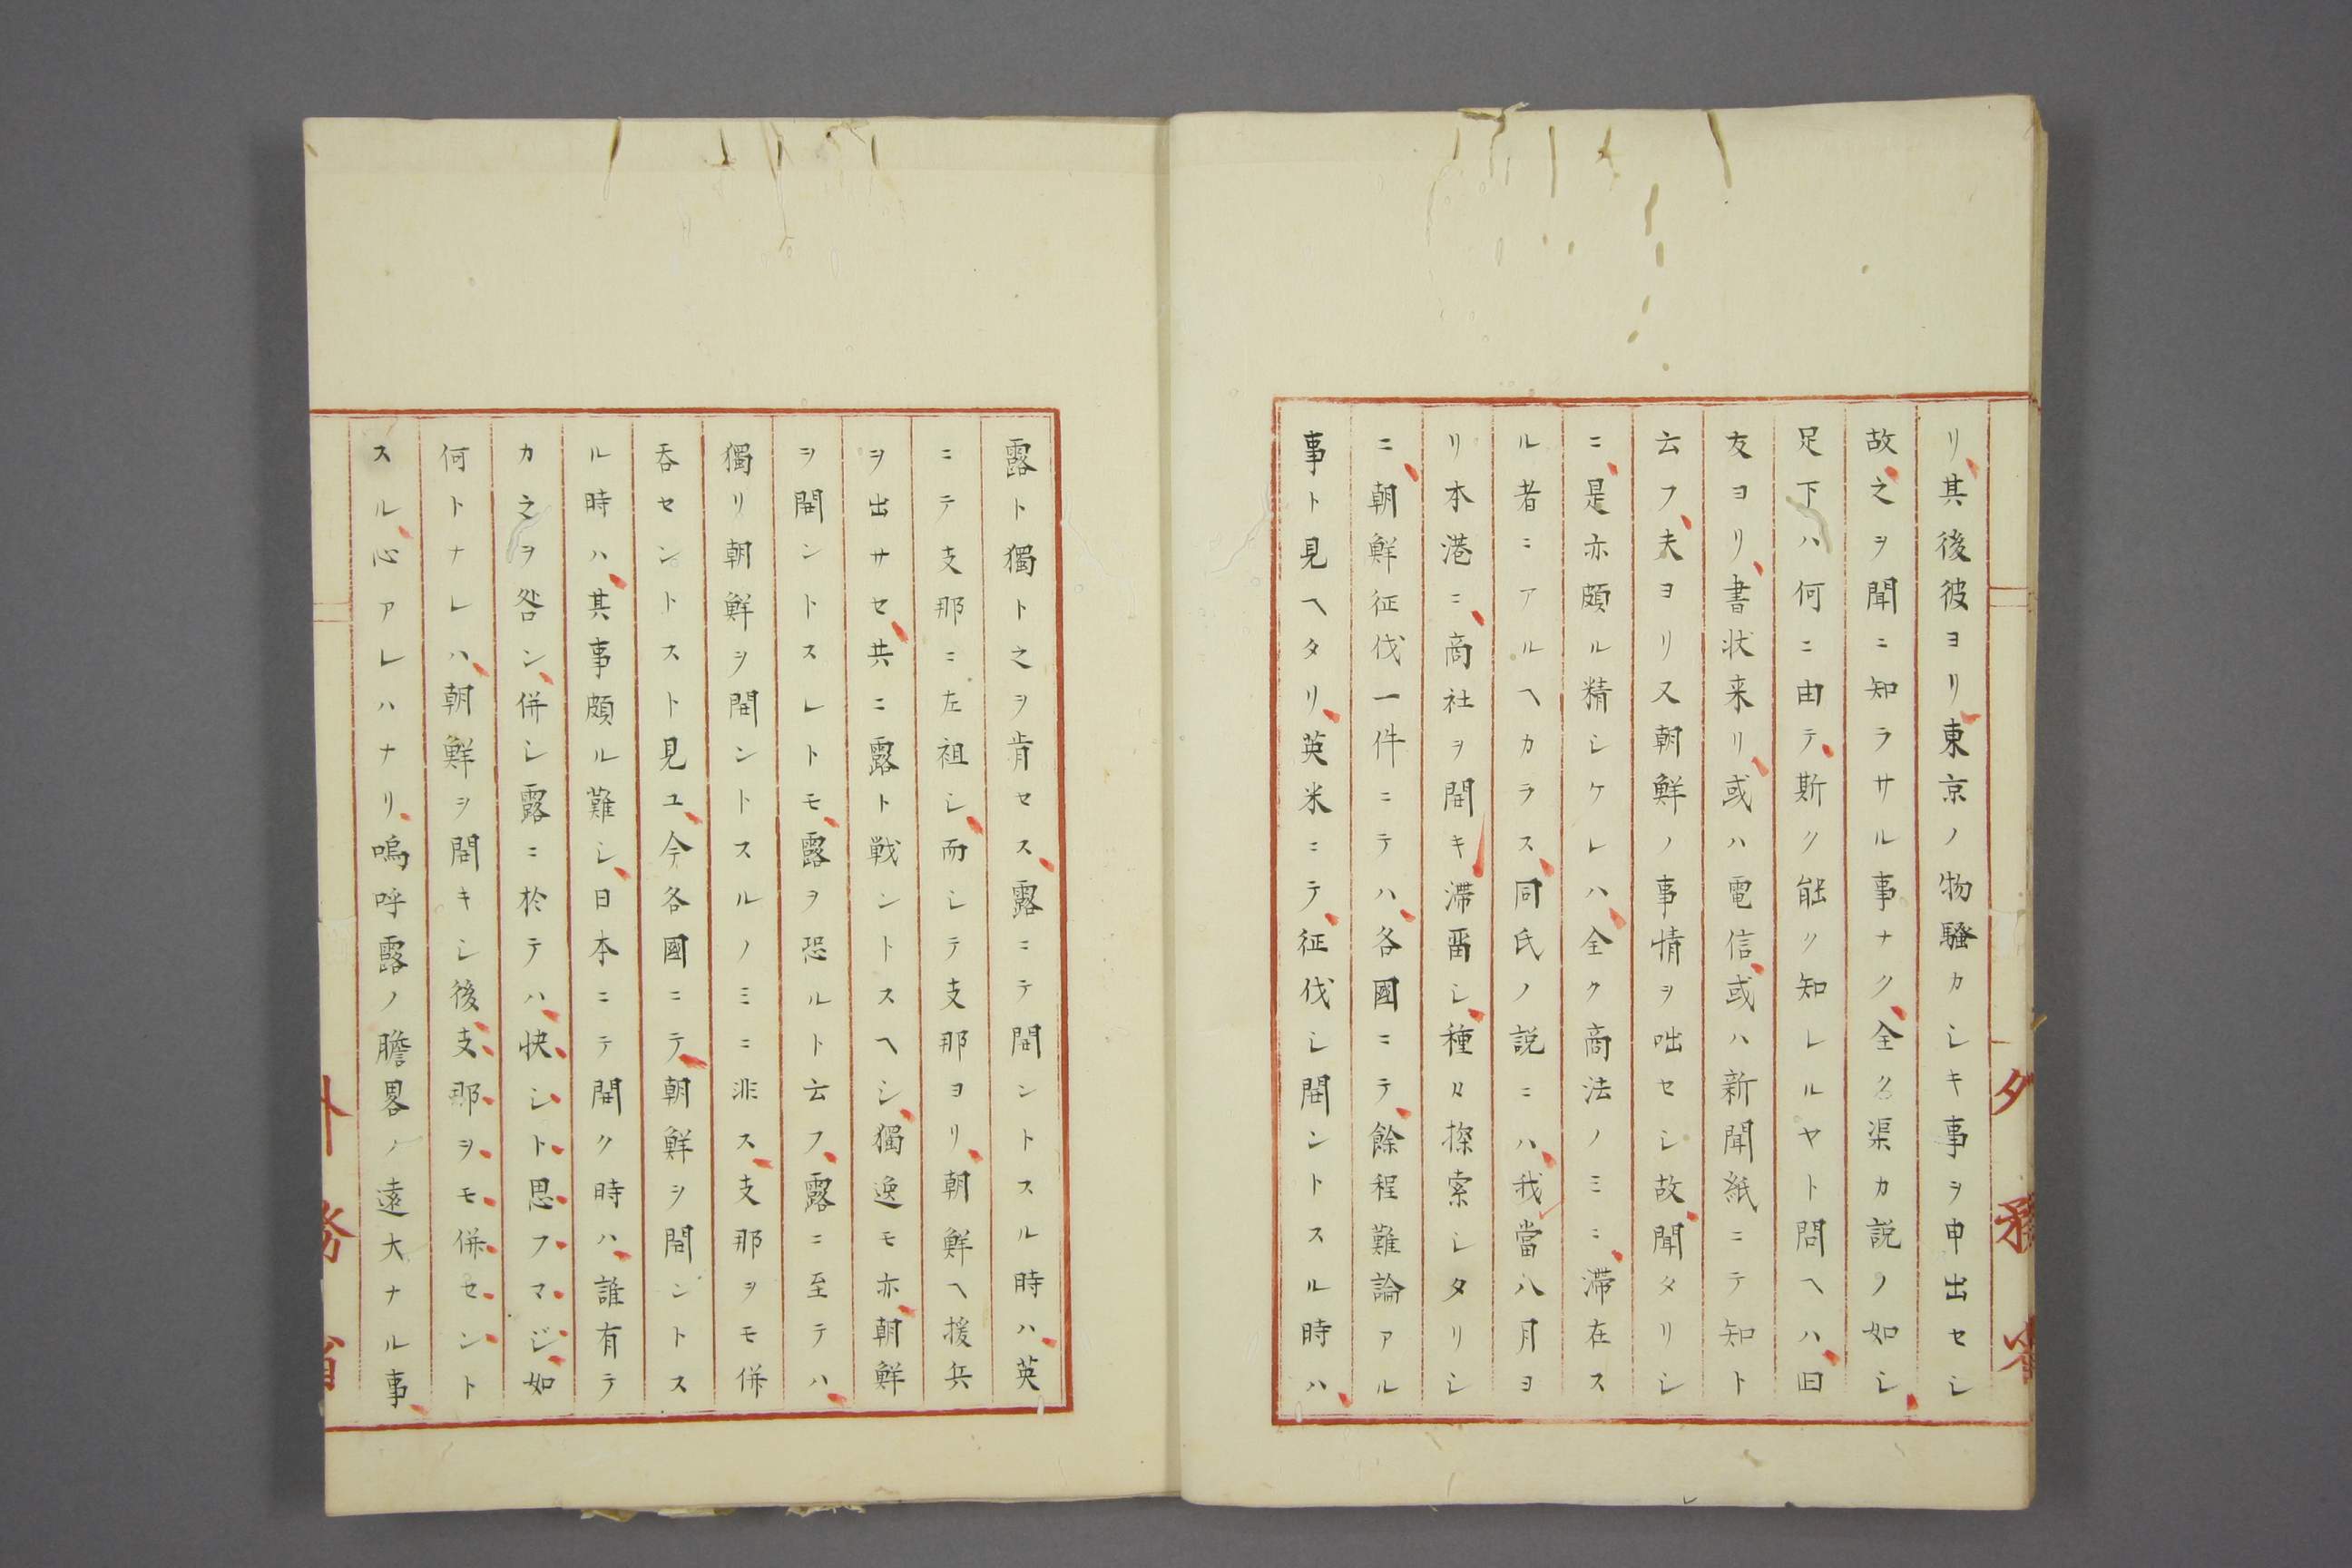 リ、其後彼ヨリ、東京ノ物騒カシキ事ヲ申出セシ
故、之ヲ聞ニ知ラサル事ナク、全ク渠カ説ノ如シ、
足下ハ何ニ由テ、斯ク能ク知レルヤト問ヘハ、曰
友ヨリ、書状来リ、或ハ電信、或ハ新聞紙ニテ知ト
云フ、夫ヨリ又朝鮮ノ事情ヲ咄セシ故、聞タリシ
ニ、是亦頗ル精シケレハ、全ク商法ノミニ、滞在ス
ル者ニアルヘカラス、同氏ノ説ニハ、我當八月ヨ
リ本港ニ、商社ヲ開キ滞畱シ、種々探索シタリシ
ニ、朝鮮征伐一件ニテハ、各國ニテ、餘程難論アル
事ト見ヘタリ、英米ニテ、征伐シ開ントスル時ハ、
露ト獨ト之ヲ肯セス、露ニテ開ントスル時ハ、英
ニテ支那ニ左祖シ、而シテ支那ヨリ、朝鮮ヘ援兵
ヲ出サセ、共ニ露ト戦ントスヘシ、獨逸モ亦、朝鮮
ヲ開ントスレトモ、露ヲ恐ルト云フ、露ニ至テハ、
獨リ朝鮮ヲ開ントスルノミニ非ス、支那ヲモ併
呑セントスト見ユ、今各國ニテ、朝鮮ヲ開ントス
ル時ハ、其事頗ル難シ、日本ニテ開ク時ハ、誰有テ
カ之ヲ咎ン、併シ露ニ於テハ、快シト思フマジ、如
何トナレハ、朝鮮ヲ開キシ後、支那ヲモ併セント
スル、心アレハナリ、嗚呼露ノ膽畧ノ遠大ナル事、
外務省
外務省